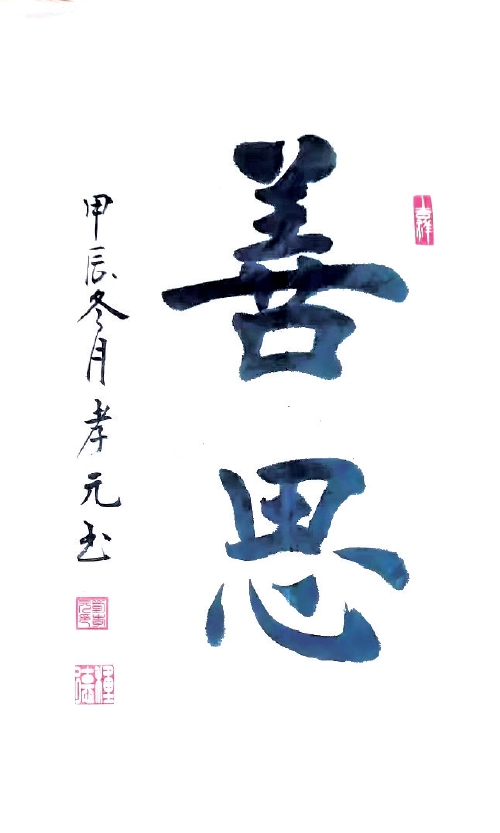 善思
甲辰冬月孝元书